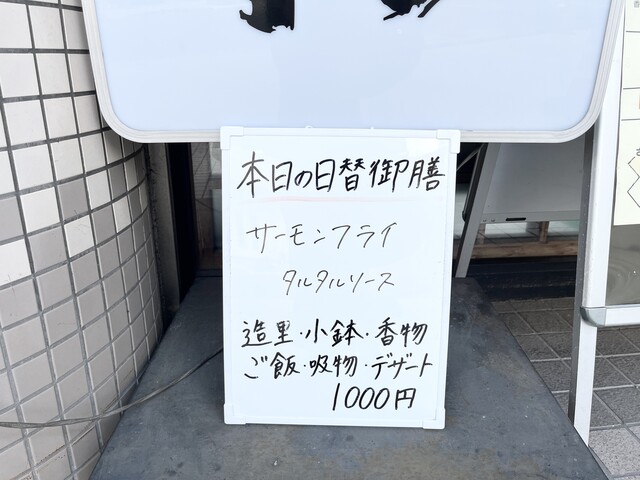 本日の日替御膳
サーモンフライ
タルタルソース
造里・小鉢・香物
ご飯・吸物・デザート
1000円